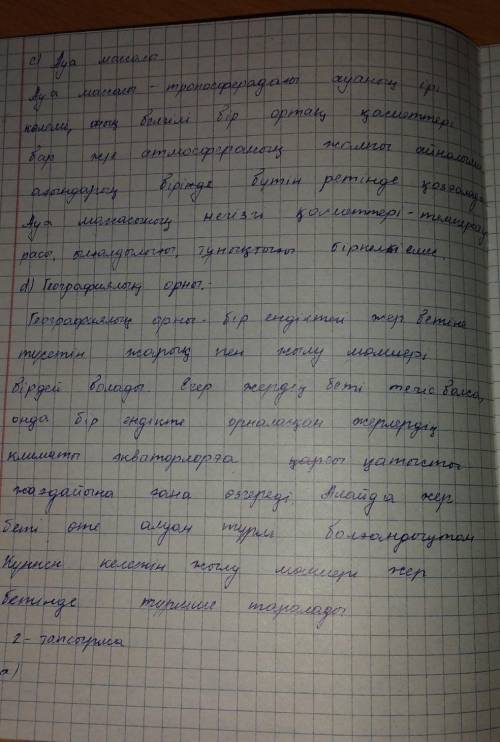 c) Ауа массасы.
Ауа массасы - тропосферадағы ауаның ірі
көлемі, оның белгілі бір ортақ қасиеттері
бар және атмосфераның жалпы айналымы
ағындарың бірінде бүтін ретінде қозғалады
Ауа массасының негізгі қасиеттері - темпера
расы, ылғалдылығы, тұнықтығы біркелкі емес.
d) Географиялық орны.-
Географиялық орны - бір ендіктен жер бетіне
түсетін жарық пен жылу мөлшері
бірдей болады. Егер жердің беті тегіс болса,
онда бір ендікте орналасқан жерлердің
климаты экваторларға қарсы қатысты
жағдайына ғана өзгереді. Алайда жер
беті өте алуан түрлі болғандықтан
Күннен келетін жылу мөлшері жер
бетінде түрліше таралады
2 - тапсырма
а)